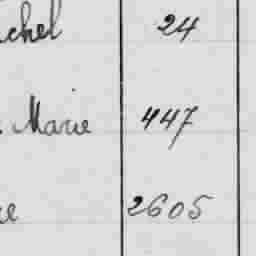 chel 24
Marie 447
e 2605